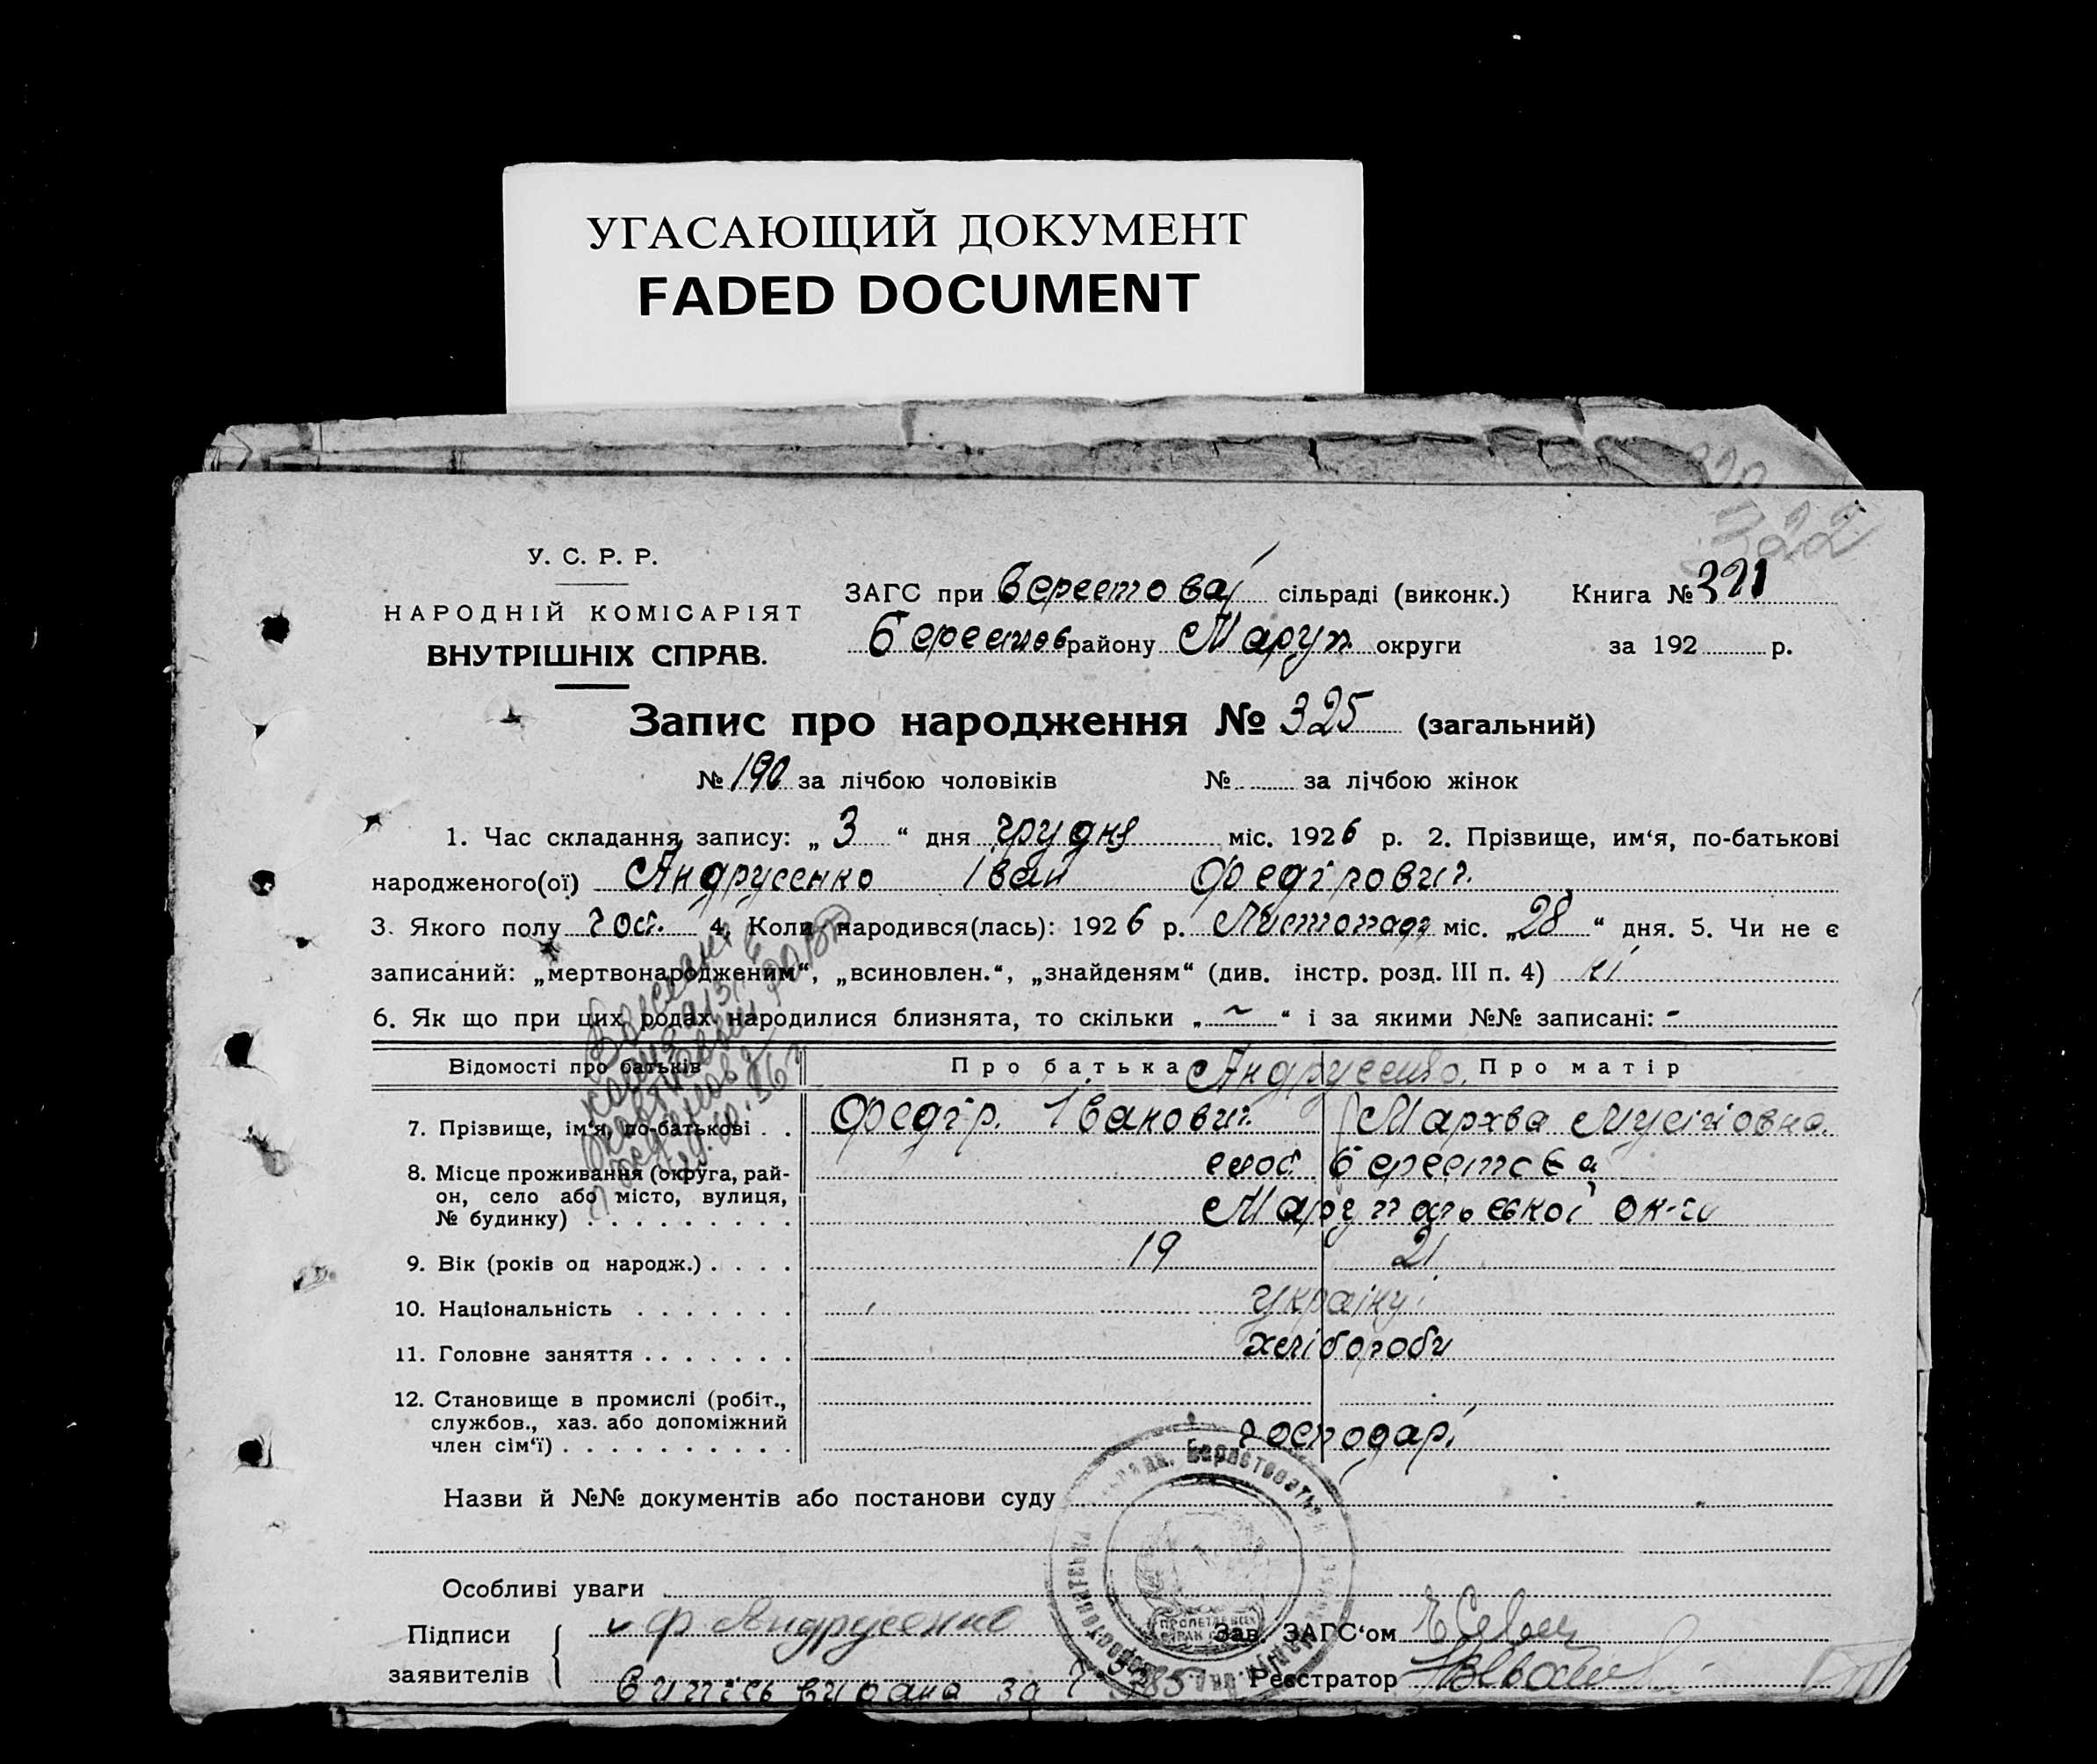 УГАСАЮЩИЙ ДОКУМЕНТ
FADED DOCUMENT
322
У. С. Р. Р.
НАРОДНІЙ КОМІСАРІЯТ
ВНУТРІШНІХ СПРАВ.
ЗАГС при Берестовій сільраді (виконк.) Книга № 321
Берестов району Маруп. округи за 192 р.
Запис про народження № 325 (загальний)
№ 190 за лічбою чоловіків № за лічбою жінок
1. Час складання запису: „ 3 “ дня грудня міс. 1926 р. 2. Прізвище, им‘я, по-батькові
народженого(ої) Андрусенко Іван Федірович.
3. Якого полу чол. 4. Коли народився(лась): 1926 р. Листопад міс. „28“ дня. 5. Чи не є
записаний: „мертвонародженим“, „всиновлен.“, „знайденям“ (див. інстр. розд. III п. 4) ні
6. Як що при цих родах народилися близнята, то скільки „ ~ “ і за якими №№ записані: -
Відомості про батьків Про батька Андрусенко. Про матір
7. Прізвище, ім‘я, по-батькові . . Федір. Іванович Мархва Мусіїовна.
8. Місце проживання (округа, рай-
он, село або місто, вулиця,
№ будинку) . . . . . . . . . .
слоб Берестова
Марупольської ок-ги
9. Вік (років од народж.) . . . . 19 21
10. Національність . . . . . . . україну.
11. Головне заняття . . . . . . . хлібороби
12. Становище в промислі (робіт.,
службов., хаз. або допоміжний
член сім‘ї) . . . . . . . . . . господарі
Назви й №№ документів або постанови суду
Особливі уваги
Підписи
заявителів
Ф Андрусенко
Зав. ЗАГС‘ом
Випись видана за
Реєстратор